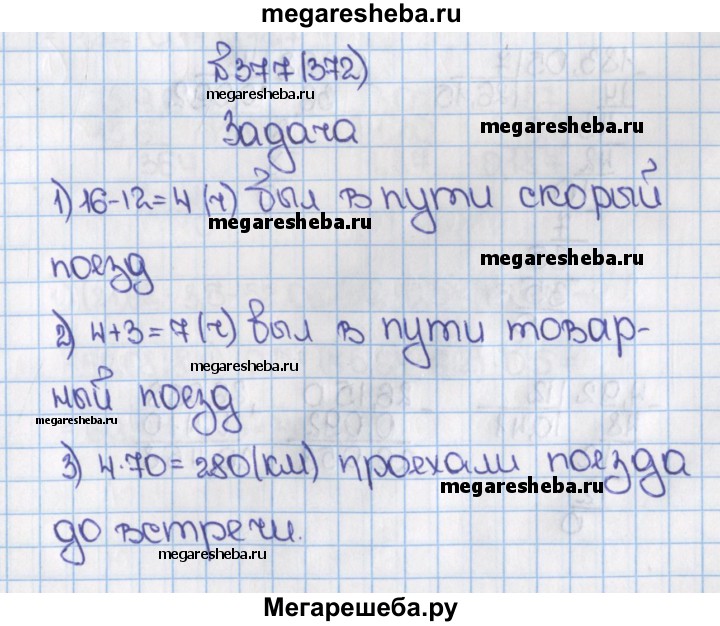 megaresheba.ru
№377(372)
megaresheba.ru
Задача
megaresheba.ru
1) 16-12=4 (ч) был в пути скорый
megaresheba.ru
поезд
megaresheba.ru
2) 4+3=7 (ч) был в пути товар-
megaresheba.ru
ный поезд
megaresheba.ru
3) 4·70=280(км) проехали поезда
megaresheba.ru
до встречи.
megaresheba.ru
Мегарешеба.ру